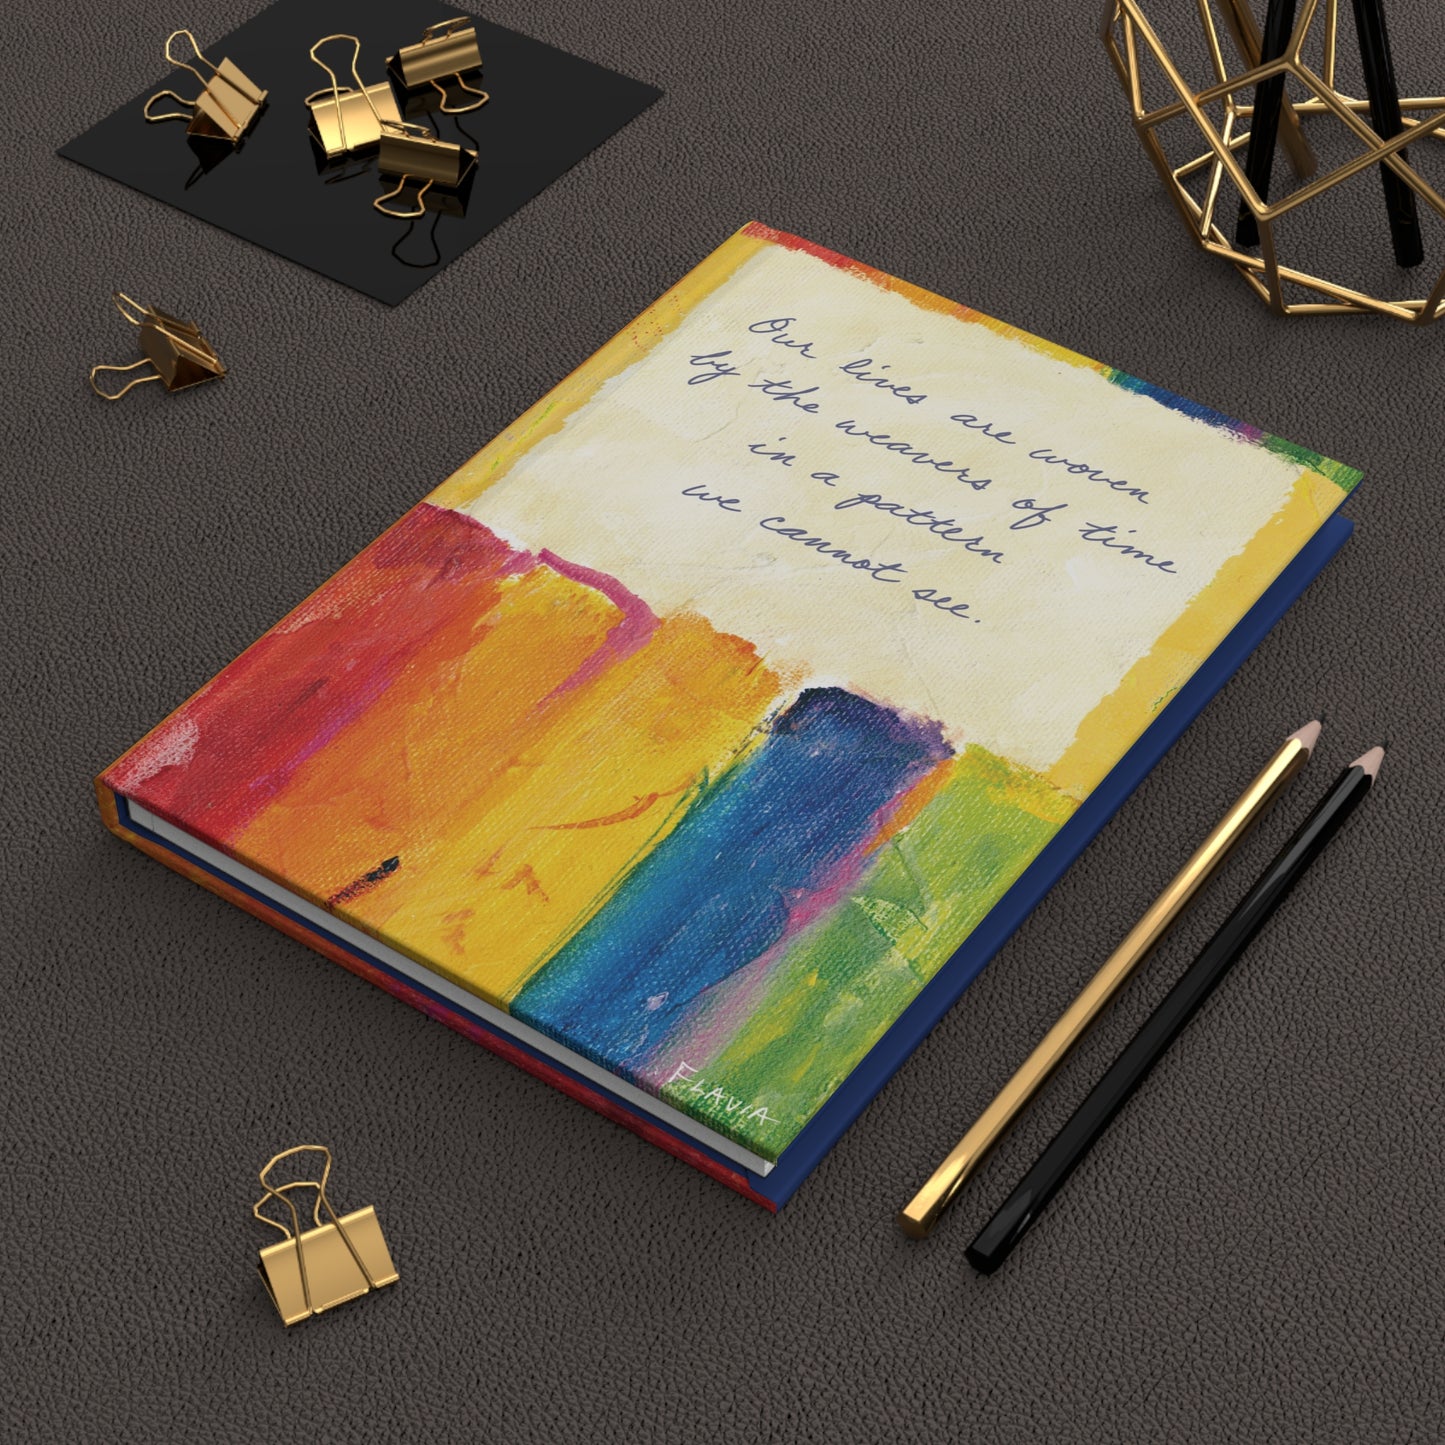 Our lives are woven
by the weavers of time
in a pattern
we cannot see.
FLAVIA